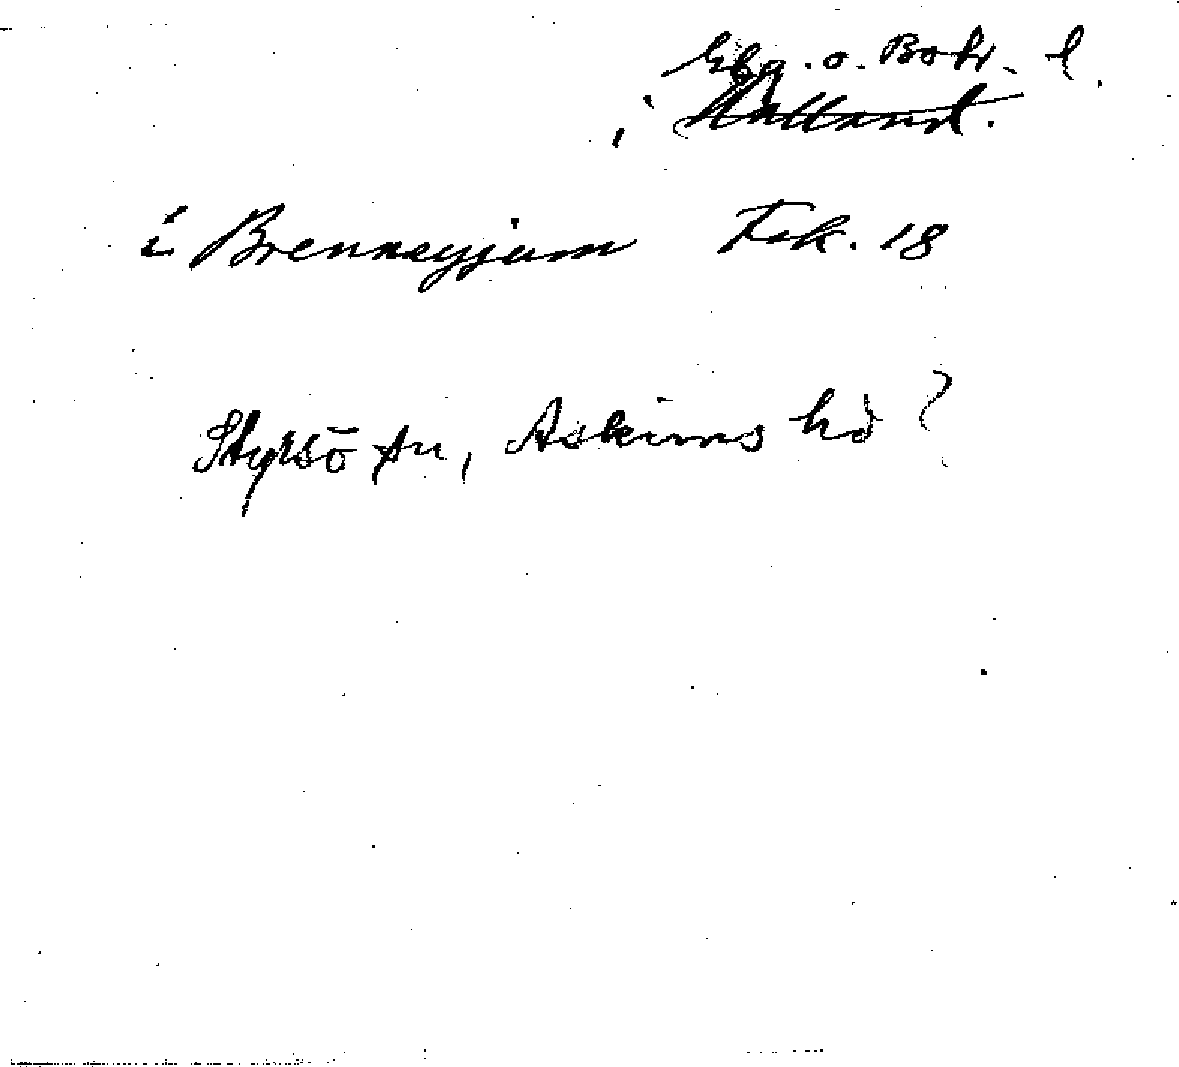 Gbg. o. Boh. l.
Halland.
í Brenneyjum Fsk. 18
Styrsö sn, Askims hd ?